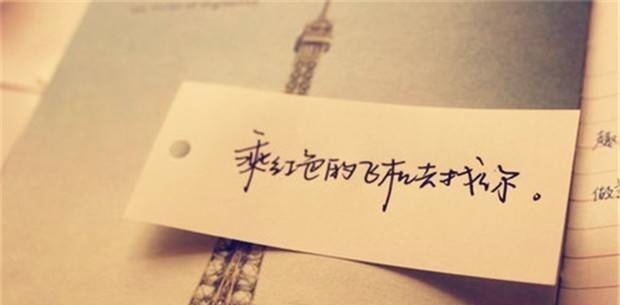 乘红色的飞机去找你。